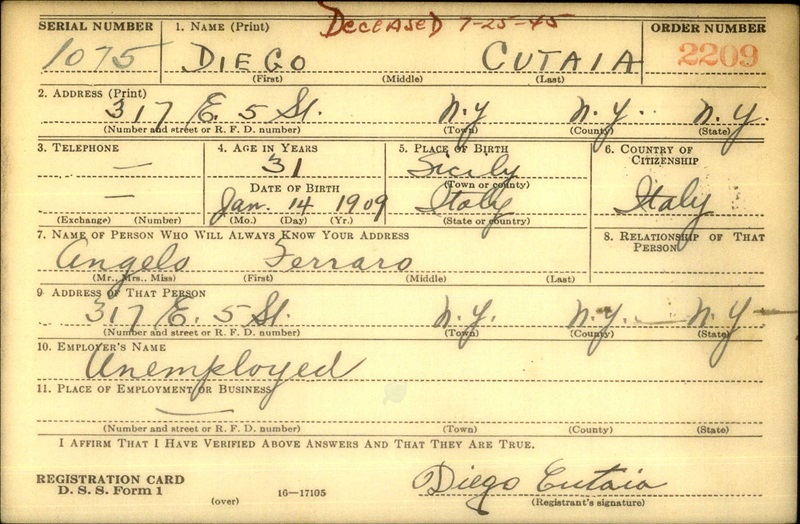 DECEASED 7-25-45
SERIAL NUMBER 1. NAME (Print) ORDER NUMBER
1075 DIEGO CUTAIA 2209
(First) (Middle) (Last)
2. ADDRESS (Print)
317 E. 5 St. N.Y N.Y. N.Y.
(Number and street or R. F. D. number) (Town) (County) (State)
3. TELEPHONE 4. AGE IN YEARS 5. PLACE OF BIRTH 6. COUNTRY OF CITIZENSHIP
— 31 Sicily
(Town or county)
— DATE OF BIRTH Italy
Jan. 14 1909 Italy
(Exchange) (Number) (Mo.) (Day) (Yr.) (State or country)
7. NAME OF PERSON WHO WILL ALWAYS KNOW YOUR ADDRESS 8. RELATIONSHIP OF THAT PERSON
Angelo Ferraro
(Mr., Mrs., Miss) (First) (Middle) (Last)
9. ADDRESS OF THAT PERSON
317 E. 5 St. N.Y. N.Y. N.Y
(Number and street or R. F. D. number) (Town) (County) (State)
10. EMPLOYER'S NAME
Unemployed
11. PLACE OF EMPLOYMENT OR BUSINESS
—
(Number and street or R. F. D. number) (Town) (County) (State)
I AFFIRM THAT I HAVE VERIFIED ABOVE ANSWERS AND THAT THEY ARE TRUE.
REGISTRATION CARD
D. S. S. Form 1 (over) 16—17105
Diego Cutaia
(Registrant's signature)